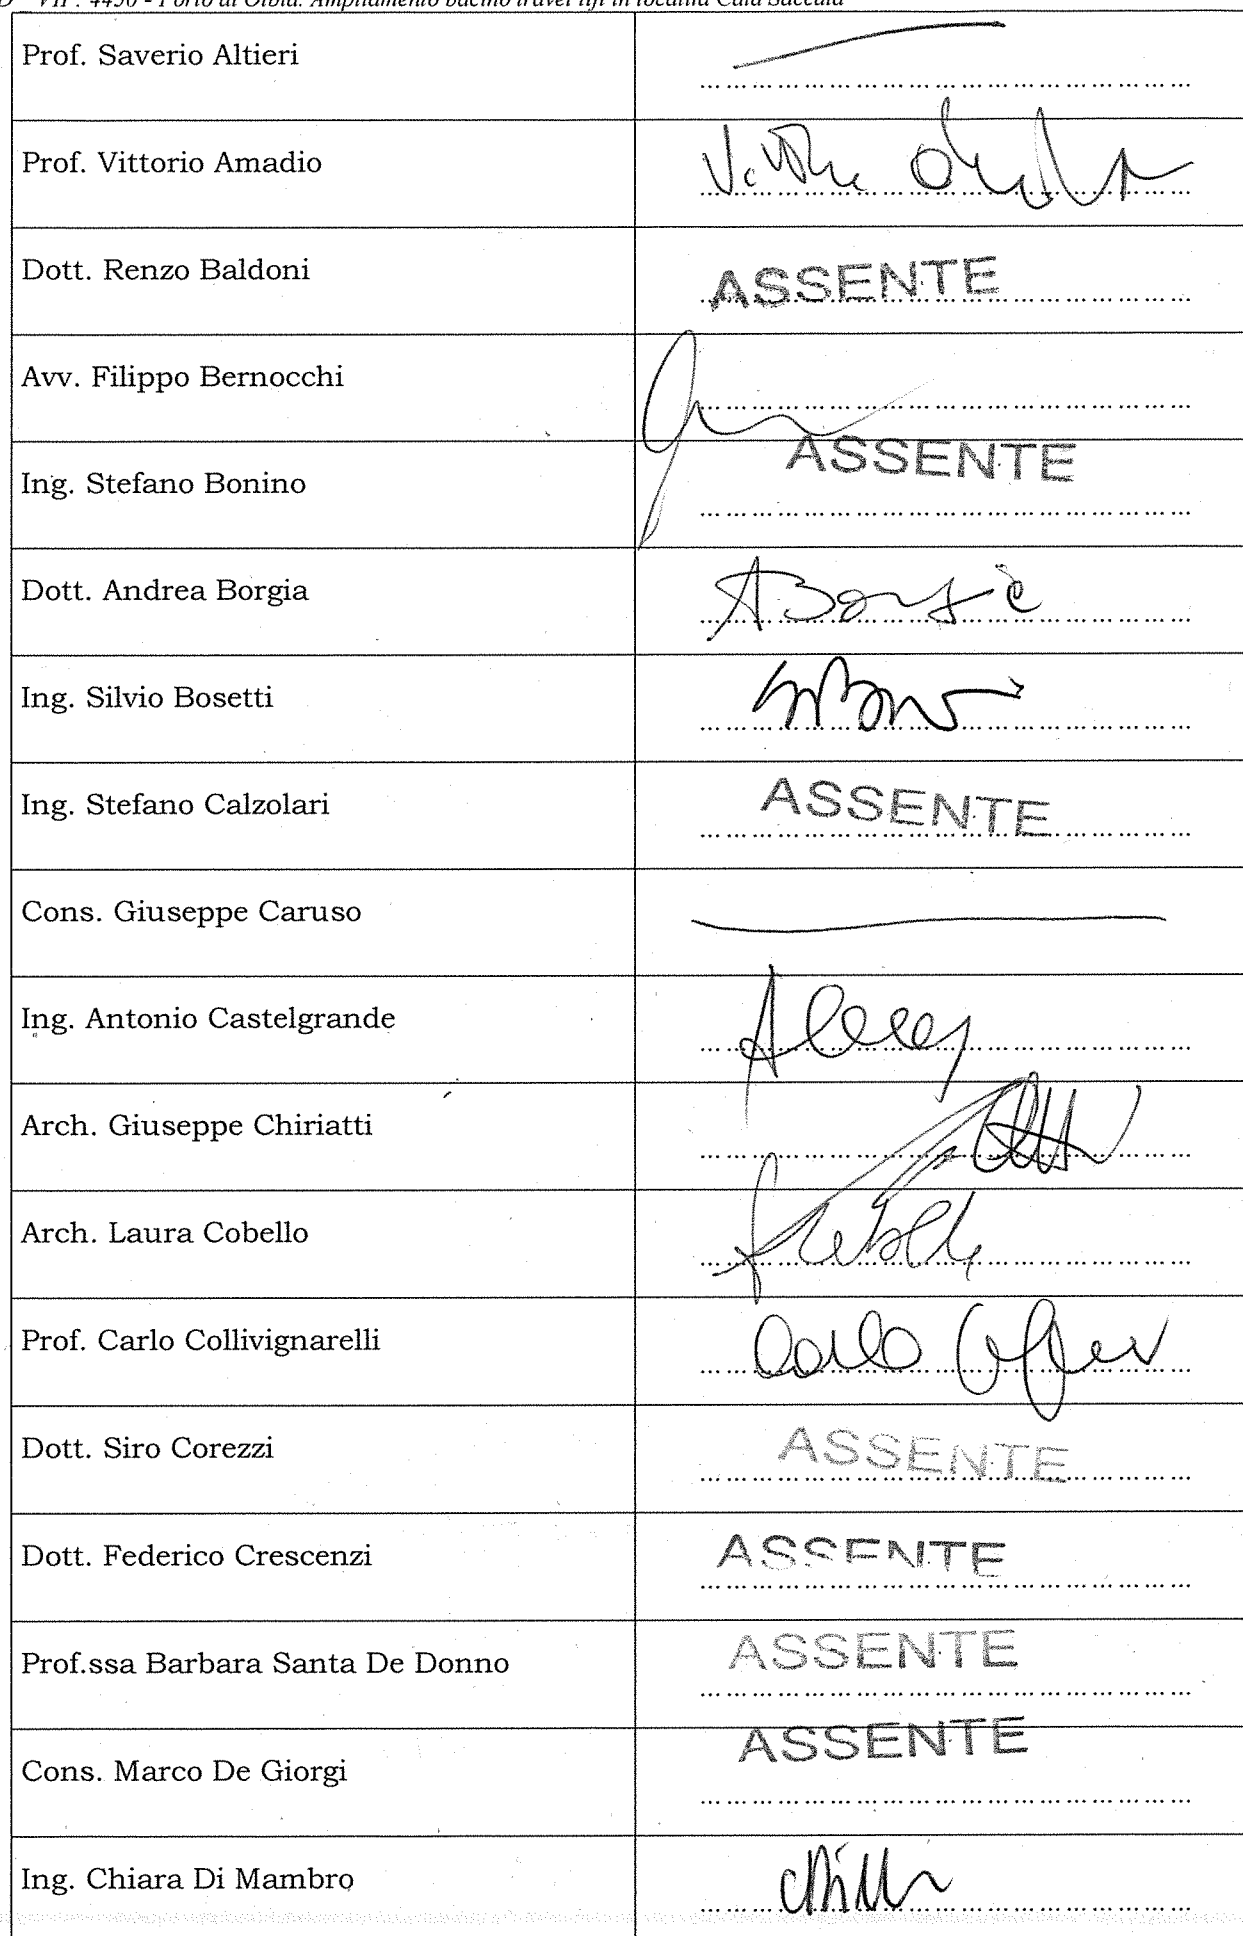 VIP: 4450 - Porto di Olbia. Ampliamento bacino travel lift in località Cala Saccaia
Prof. Saverio Altieri
Prof. Vittorio Amadio
Dott. Renzo Baldoni ASSENTE
Avv. Filippo Bernocchi
Ing. Stefano Bonino ASSENTE
Dott. Andrea Borgia ABorgia
Ing. Silvio Bosetti
Ing. Stefano Calzolari ASSENTE
Cons. Giuseppe Caruso
Ing. Antonio Castelgrande
Arch. Giuseppe Chiriatti
Arch. Laura Cobello
Prof. Carlo Collivignarelli Carlo
Dott. Siro Corezzi ASSENTE
Dott. Federico Crescenzi ASSENTE
Prof.ssa Barbara Santa De Donno ASSENTE
Cons. Marco De Giorgi ASSENTE
Ing. Chiara Di Mambro